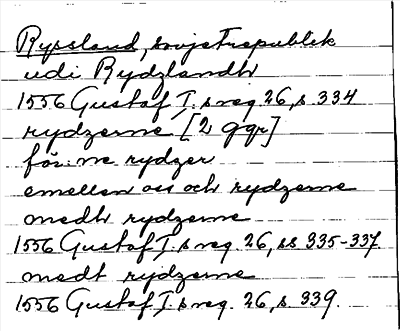 Ryssland, sovjetrepublik
udi Rydzlandh
1556 Gustaf I. s reg. 26, s 334
rydzerne [2 ggr]
för:ne rydzer
emellan oss och rydzerne
medh rydzerne
1556 Gustaf I. s reg. 26, ss 335-337.
medt rydzerne
1556 Gustaf I. s reg. 26, s 339.